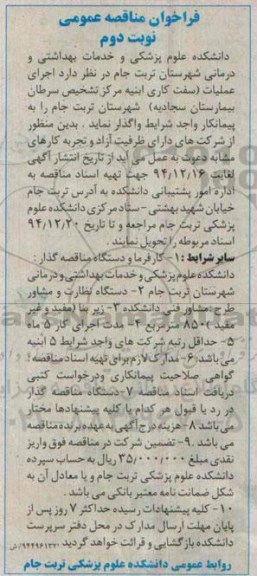 فراخوان مناقصه عمومی
نوبت دوم
دانشکده علوم پزشکی و خدمات بهداشتی و
درمانی شهرستان تربت جام در نظر دارد اجرای
عملیات (سفت کاری ابنیه مرکز تشخیص سرطان
بیمارستان سجادیه) شهرستان تربت جام را به
پیمانکار واجد شرایط واگذار نماید . بدین منظور
از شرکت های دارای ظرفیت آزاد و تجربه کارهای
مشابه دعوت به عمل می آید از تاریخ انتشار آگهی
لغایت ۹۴/۱۲/۱۶ جهت تهیه اسناد مناقصه به
اداره امور پشتیبانی دانشکده به آدرس تربت جام
خیابان شهید بهشتی - ستاد مرکزی دانشکده علوم
پزشکی تربت جام مراجعه و تا تاریخ ۹۴/۱۲/۲۰
اسناد مربوطه را تحویل نمایند .
سایر شرایط : ۱- کارفرما و دستگاه مناقصه گذار :
دانشکده علوم پزشکی و خدمات بهداشتی و درمانی
شهرستان تربت جام ۲- دستگاه نظارت و مشاور
طرح : مشاور فنی دانشکده ۳- زیر بنا (مفید و غیر
مفید) ۸۵۰ متر مربع ۴- مدت اجرای کار ۵ ماه
۵- حداقل رتبه شرکت های واجد شرایط ۵ ابنیه
می باشد ۶- مدارک لازم برای تهیه اسناد مناقصه :
گواهی صلاحیت پیمانکاری و درخواست کتبی
دریافت اسناد مناقصه ۷- دستگاه مناقصه گذار
در رد یا قبول هر کدام یا کلیه پیشنهادها مختار
می باشد ۸- هزینه درج آگهی به عهده برنده مناقصه
می باشد ۹- تضمین شرکت در مناقصه فوق واریز
نقدی مبلغ ۳۵/۰۰۰/۰۰۰ ریال به حساب سپرده
دانشکده علوم پزشکی تربت جام و یا معادل آن به
شکل ضمانت نامه معتبر بانکی می باشد .
۱۰- کلیه پیشنهادات رسیده حداکثر ۷ روز پس از
پایان مهلت ارسال مدارک در محل دفتر سرپرست
دانشکده بازگشایی و قرائت خواهد گردید
روابط عمومی دانشکده علوم پزشکی تربت جام